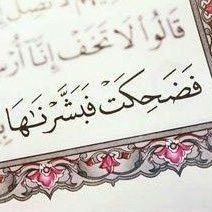 قَالُوا۟ لَا تَخَفْ إِنَّآ أُرْ
فَضَحِكَتْ فَبَشَّرْنَـٰهَا